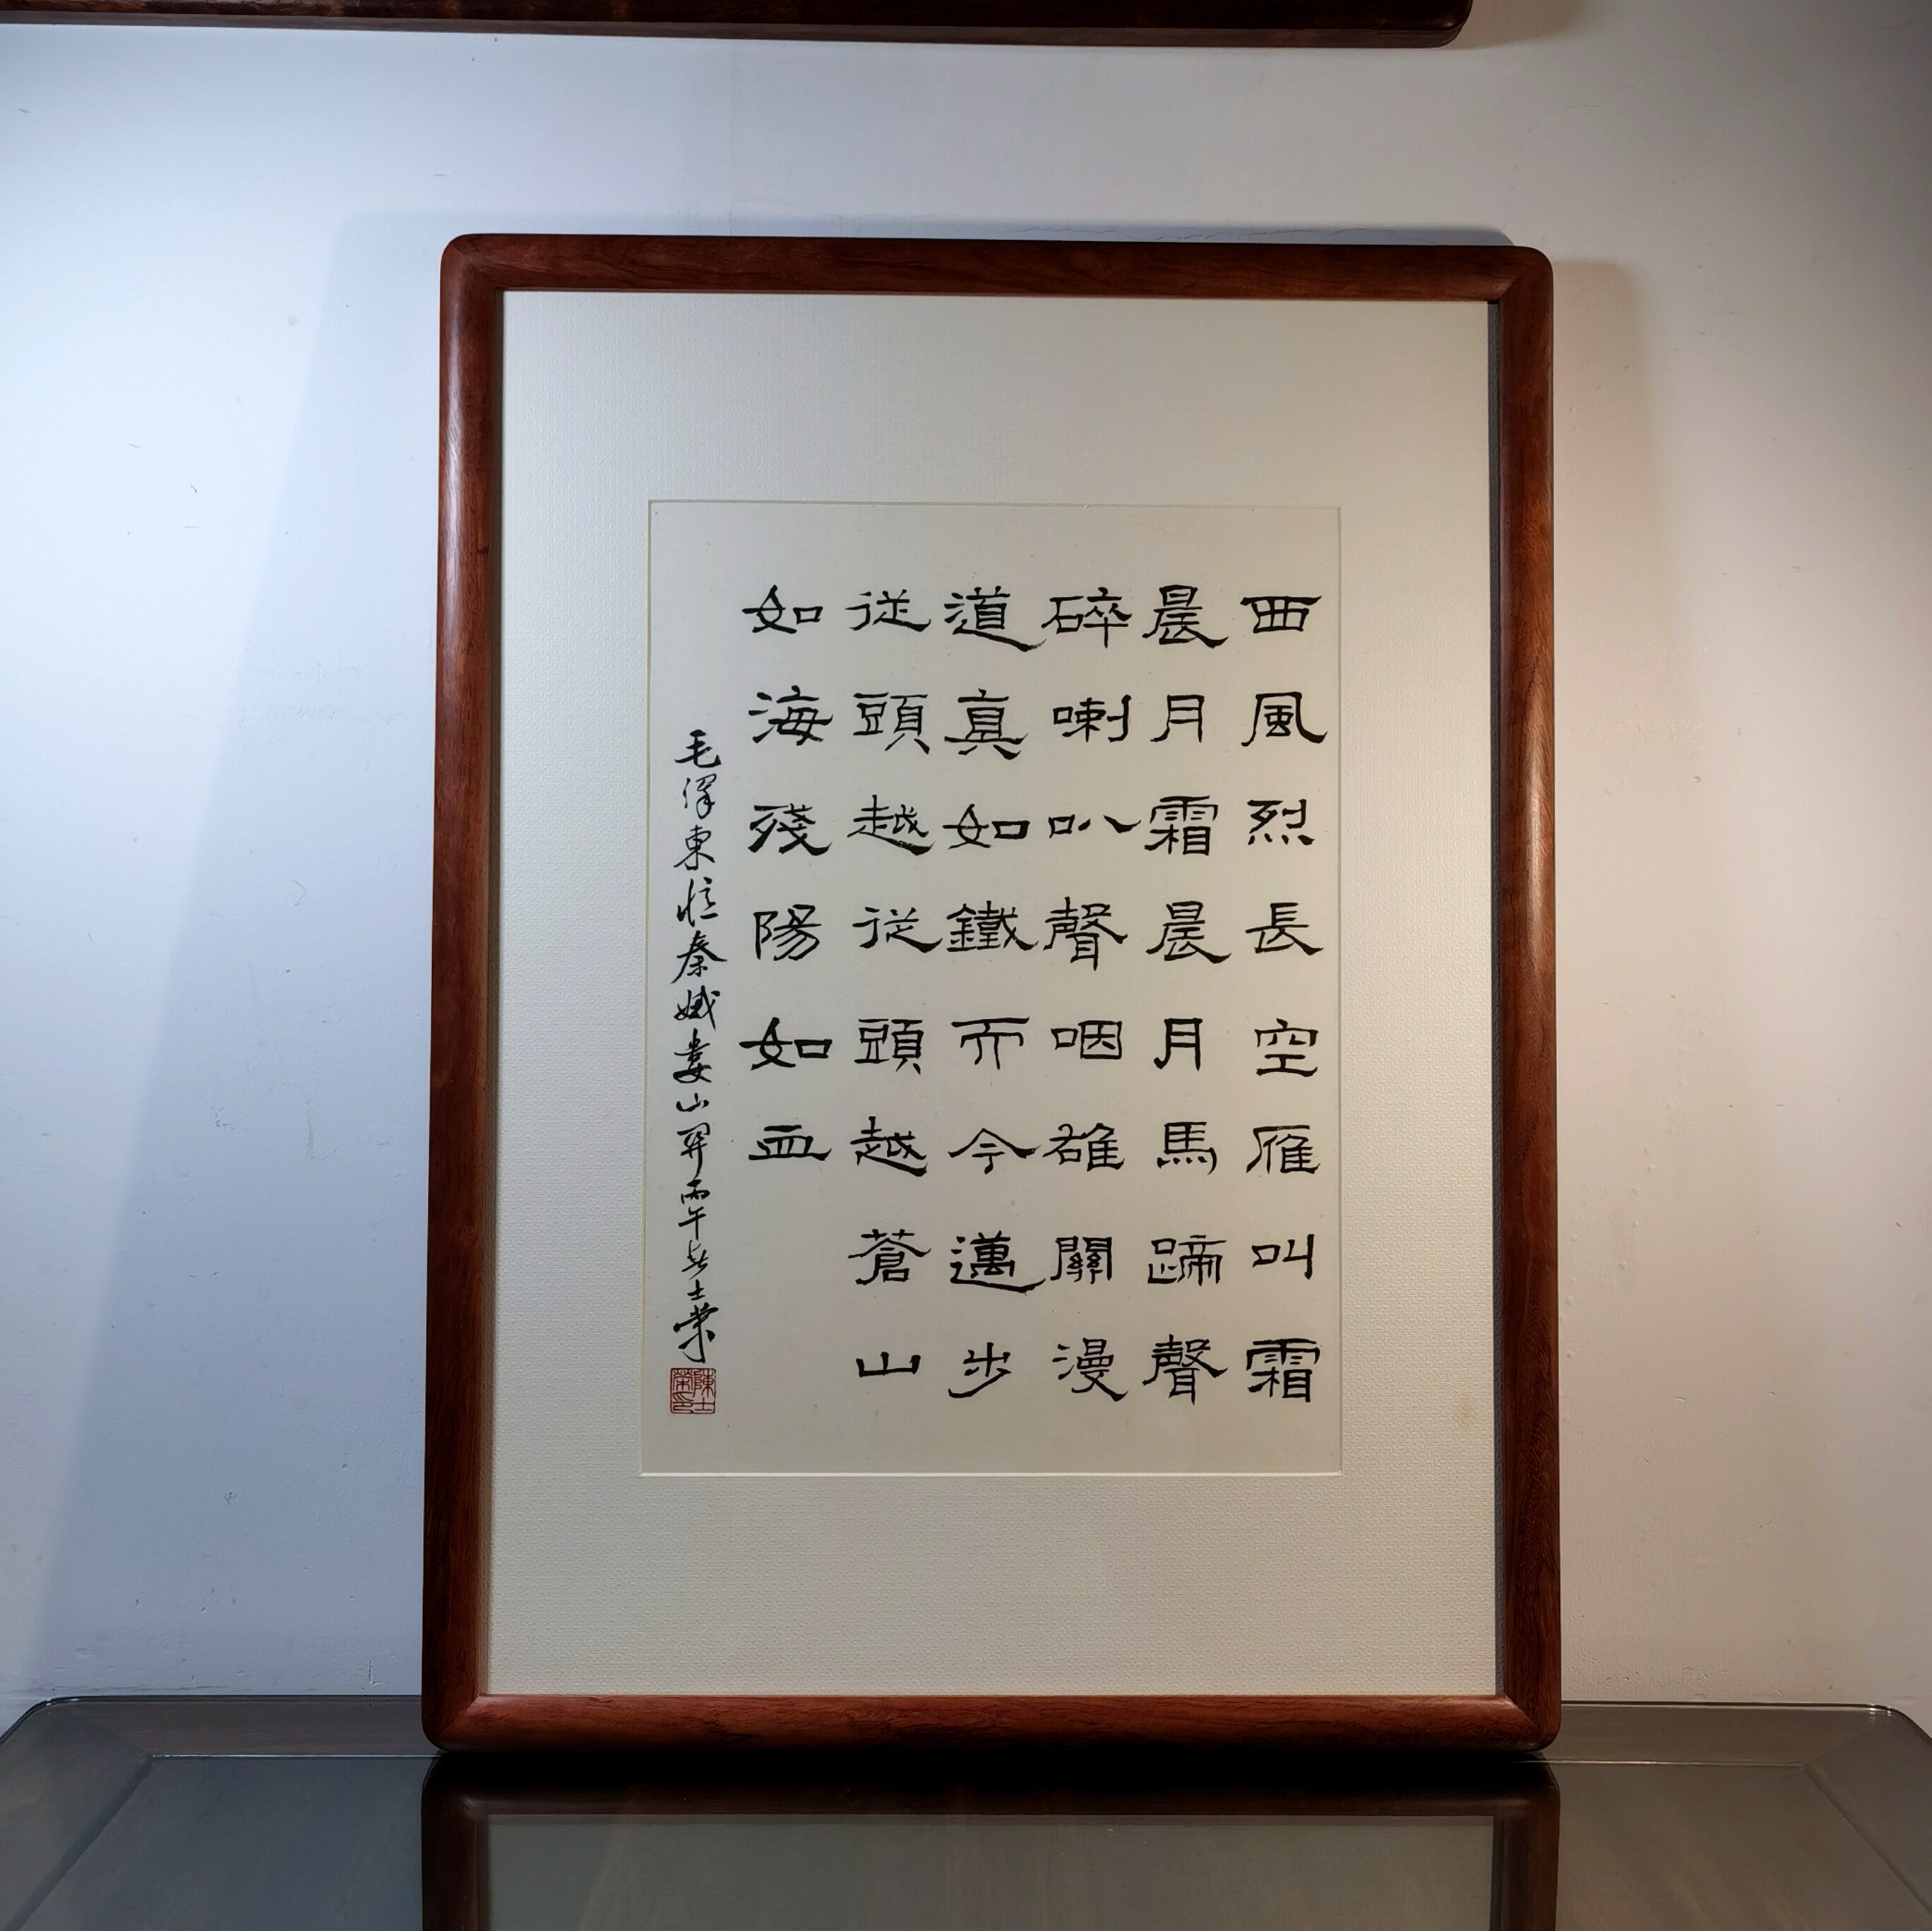 西風烈長空雁叫霜
晨月霜晨月馬蹄聲
碎喇叭聲咽雄關漫
道真如鐵而今邁步
従頭越従頭越蒼山
如海殘陽如血
毛澤東憶秦娥婁山関丙午士榮
陳士榮印